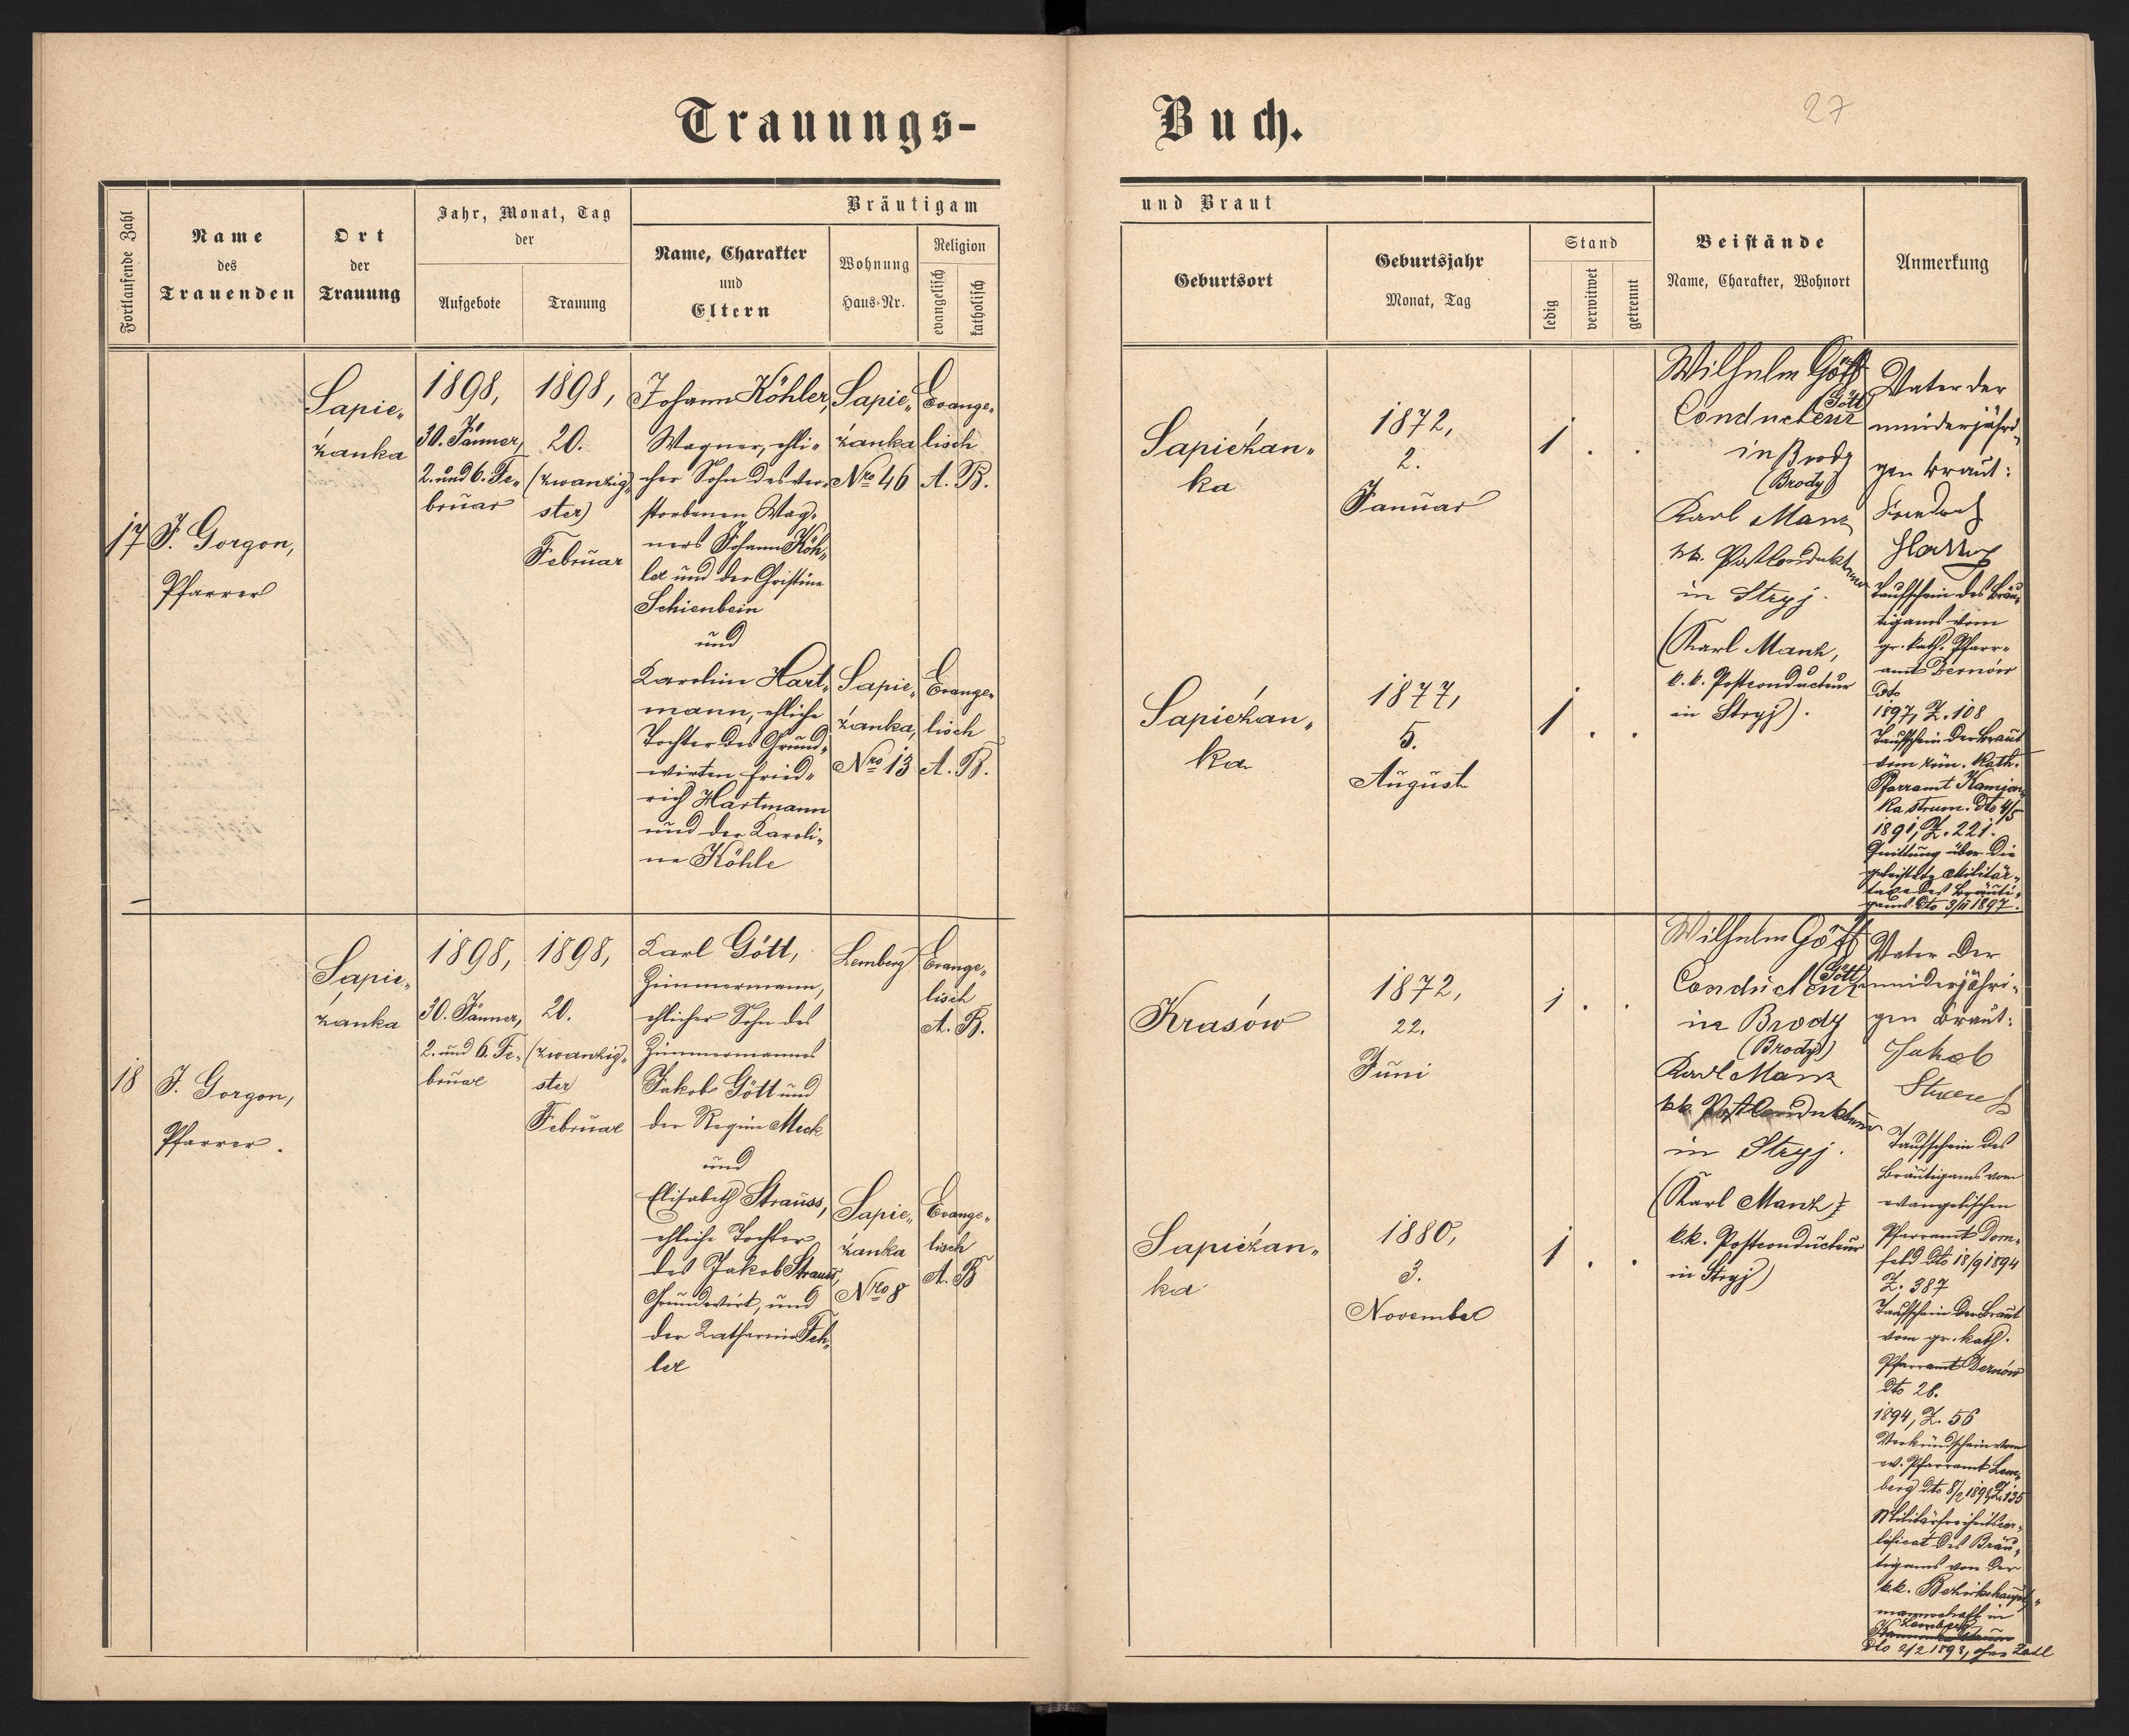 Trauungs-
Buch.
27
Fortlaufende Zahl
Name
des
Trauenden
Ort
der
Trauung
Jahr, Monat, Tag
der
Aufgebote
Trauung
Bräutigam
Name, Charakter
und
Eltern
Wohnung
Haus-Nr.
Religion
evangelisch
katholisch
und Braut
Geburtsort
Geburtsjahr
Monat, Tag
Stand
ledig
verwitwet
getrennt
Beistände
Name, Charakter, Wohnort
Anmerkung
17
J. Gorgon,
Pfarrer
Sapie„
żanka
1898,
30. Jänner,
2. und 6. Fe„
bruar
1898,
20.
(zwanzig„
ster)
Februar
Johann Köhler,
Wagner, ehli„
cher Sohn des ver„
storbenen Wag„
ners Johann Köh„
ler und der Christine
Schienbein
und
Karolin Hart„
mann, ehliche
Tochter des Grund„
wirten Fried„
rich Hartmann
und der Karoli„
ne Köhle
Sapie„
żanka
Nro 46
Sapie„
żanka,
Nro 13
Evange„
lisch
A. B.
Evange„
lisch
A. B.
Sapieżan„
ka
Sapieżan„
ka
1872,
2.
Januar
1877,
5.
August
1 . .
1 . .
Wilhelm Gött
(Gött)
Conducteur
in Brody
(Brody)
Karl Manz
kk. Postkondukteur
in Stryj.
(Karl Manz,
k.k. Postconducteur
in Stryj).
Vater der
minderjähri„
gen Braut:
Friedrich
Hartmann
Taufschein des Bräu„
tigams vom
gr. kath. Pfarr„
amt Dernów
dto
1897, Z. 108
Taufschein der Braut
vom röm. kath.
Pfarramt Kamion„
ka strum. dto 4/5
1891, Z. 221.
Quittung über die
geleistete Militär„
taxe des Bräuti„
gams dto 3/11 1897.
18
J. Gorgon,
Pfarrer.
Sapie„
żanka
1898,
30. Jänner,
2. und 6. Fe„
bruar
1898,
20.
(zwanzig„
ster
Februar
Karl Gött,
Zimmermann,
ehlicher Sohn des
Zimmermannes
Jakob Gött und
der Regine Meck
und
Elisabeth Strauss,
ehliche Tochter
des Jakob Strauss,
Grundwirt, und
der Katharine Feh„
ler
Lemberg
Sapie„
żanka
Nro 8
Evange„
lisch
A. B.
Evange„
lisch
A. B
Krasów
Sapieżan„
ka
1872,
22.
Juni
1880,
3.
November
1 . .
1 . .
Wilhelm Gött
(Gött)
Conducteur
in Brody
(Brody)
Karl Manz
kk Postkondukteur
in Stryj.
(Karl Manz,
k.k. Postconducteur
in Stryj)
Vater der
minderjähri„
gen Braut:
Jakob
Strauss
Taufschein des
Bräutigams vom
evangelischen
Pfarramt Dorn„
feld dto 18/9 1894
Z. 387
Taufschein der Braut
vom gr. kath.
Pfarramt Dernów
dto 28.
1894, Z. 56
Verkündschein vom
ev. Pfarramt Lem„
berg dto 8/2 1898, Z. 135
Militärfreiheitscer„
tificat des Bräu„
tigams von der
k.k. Bezirkshaupt„
mannschaft in
Lemberg
dto 2/2 1898, ohne Zahl